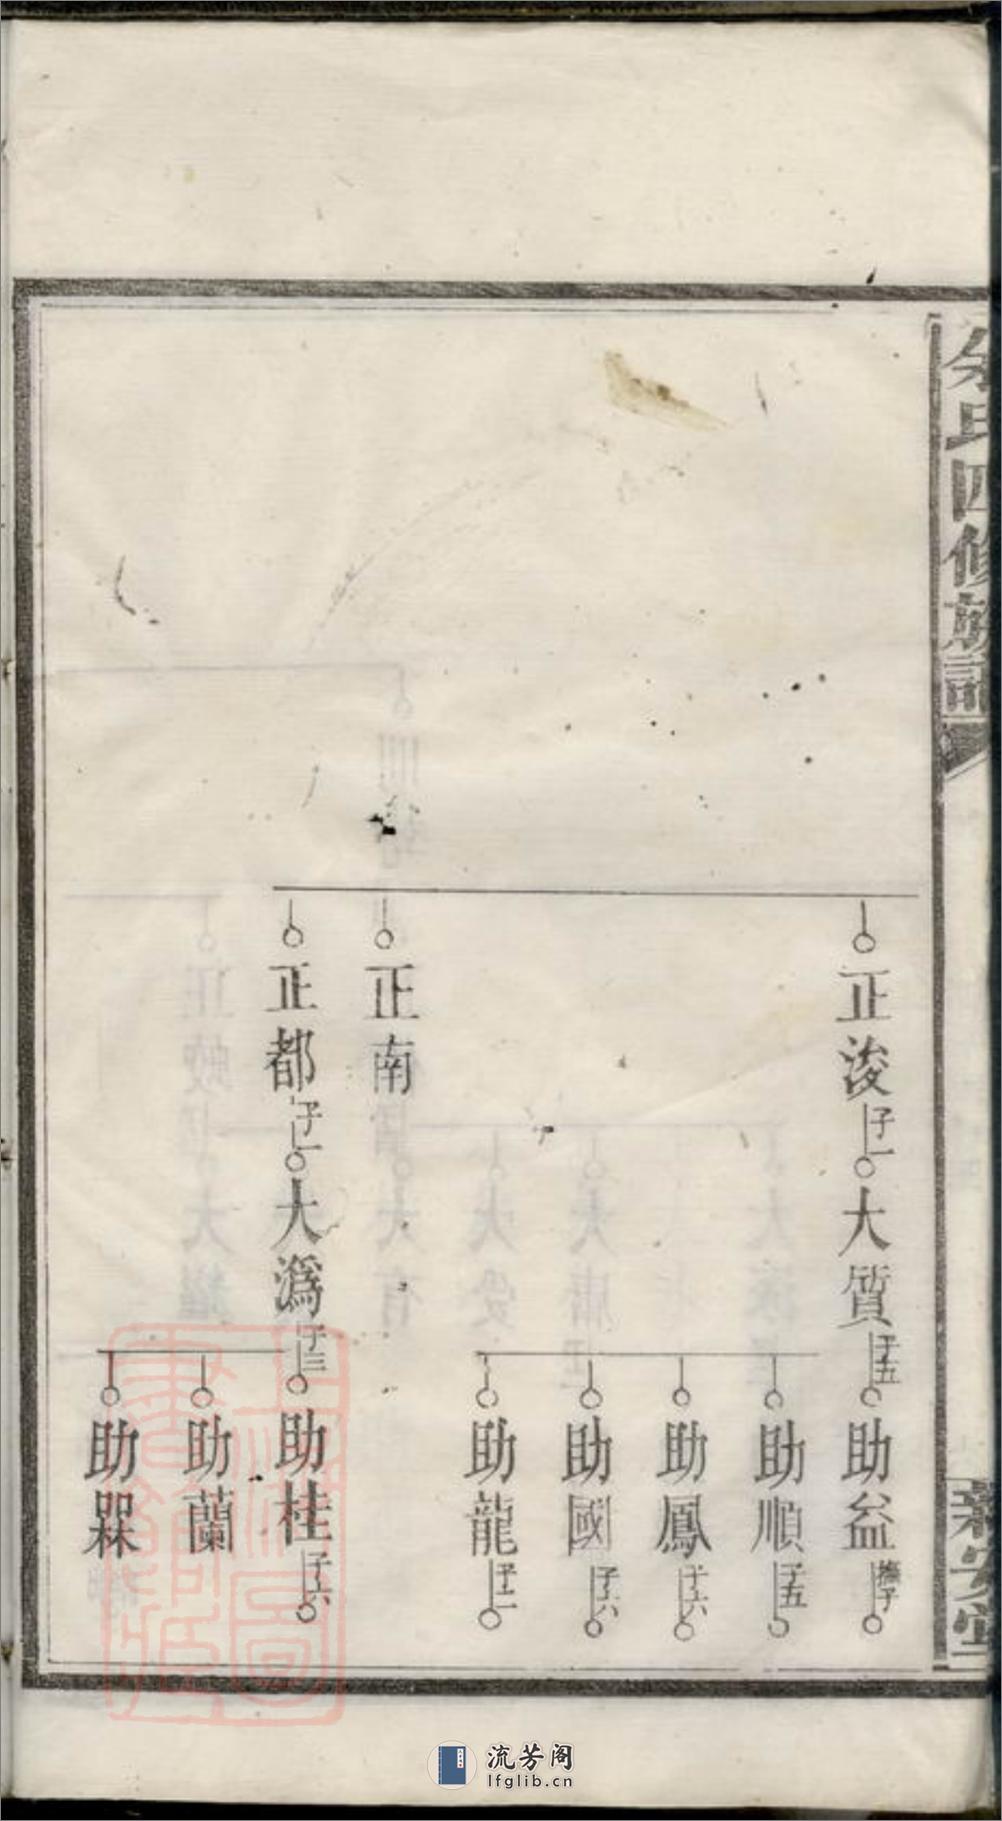 余氏四修族譜
新安堂
正浚
子一
大質
子五
助益
撫子
助順
子五
助鳳
子六
助國
子六
助龍
子二
正南
正都
子一
大溈
子三
助桂
子六
助蘭
助槑
上海圖書館藏
流芳阁
lfglib.cn